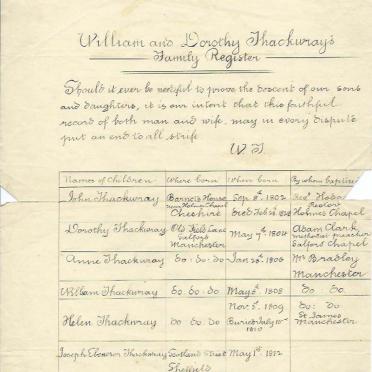 William and Dorothy Thackwray's
Family Register
Should it ever be needful to prove the descent of our sons
and daughters, it is our intent that this faithful
record of both man and wife, may in every dispute
put an end to all strife
W.T
Names of Children Where born When born By whom baptised
John Thackwray Barnets House Sep 8th 1802
near Holmes Chapel
Cheshire Died Feb 28th Holmes Chapel
Dorothy Thackwray Old Field Lane May 7th 1804 Adam Clark
Salford Methodist preacher
Manchester Salford Chapel
Anne Thackwray do: do: do Jan 28th 1806 Mr Bradley
Manchester
William Thackwray do. do. do May 1808 do do.
Nov 1809 do: do
Helen Thackwray do. do. do Buried July 1810 St James
Manchester
Joseph Ebenezer Thackwray Scotland Street May 1st 1812
Sheffield